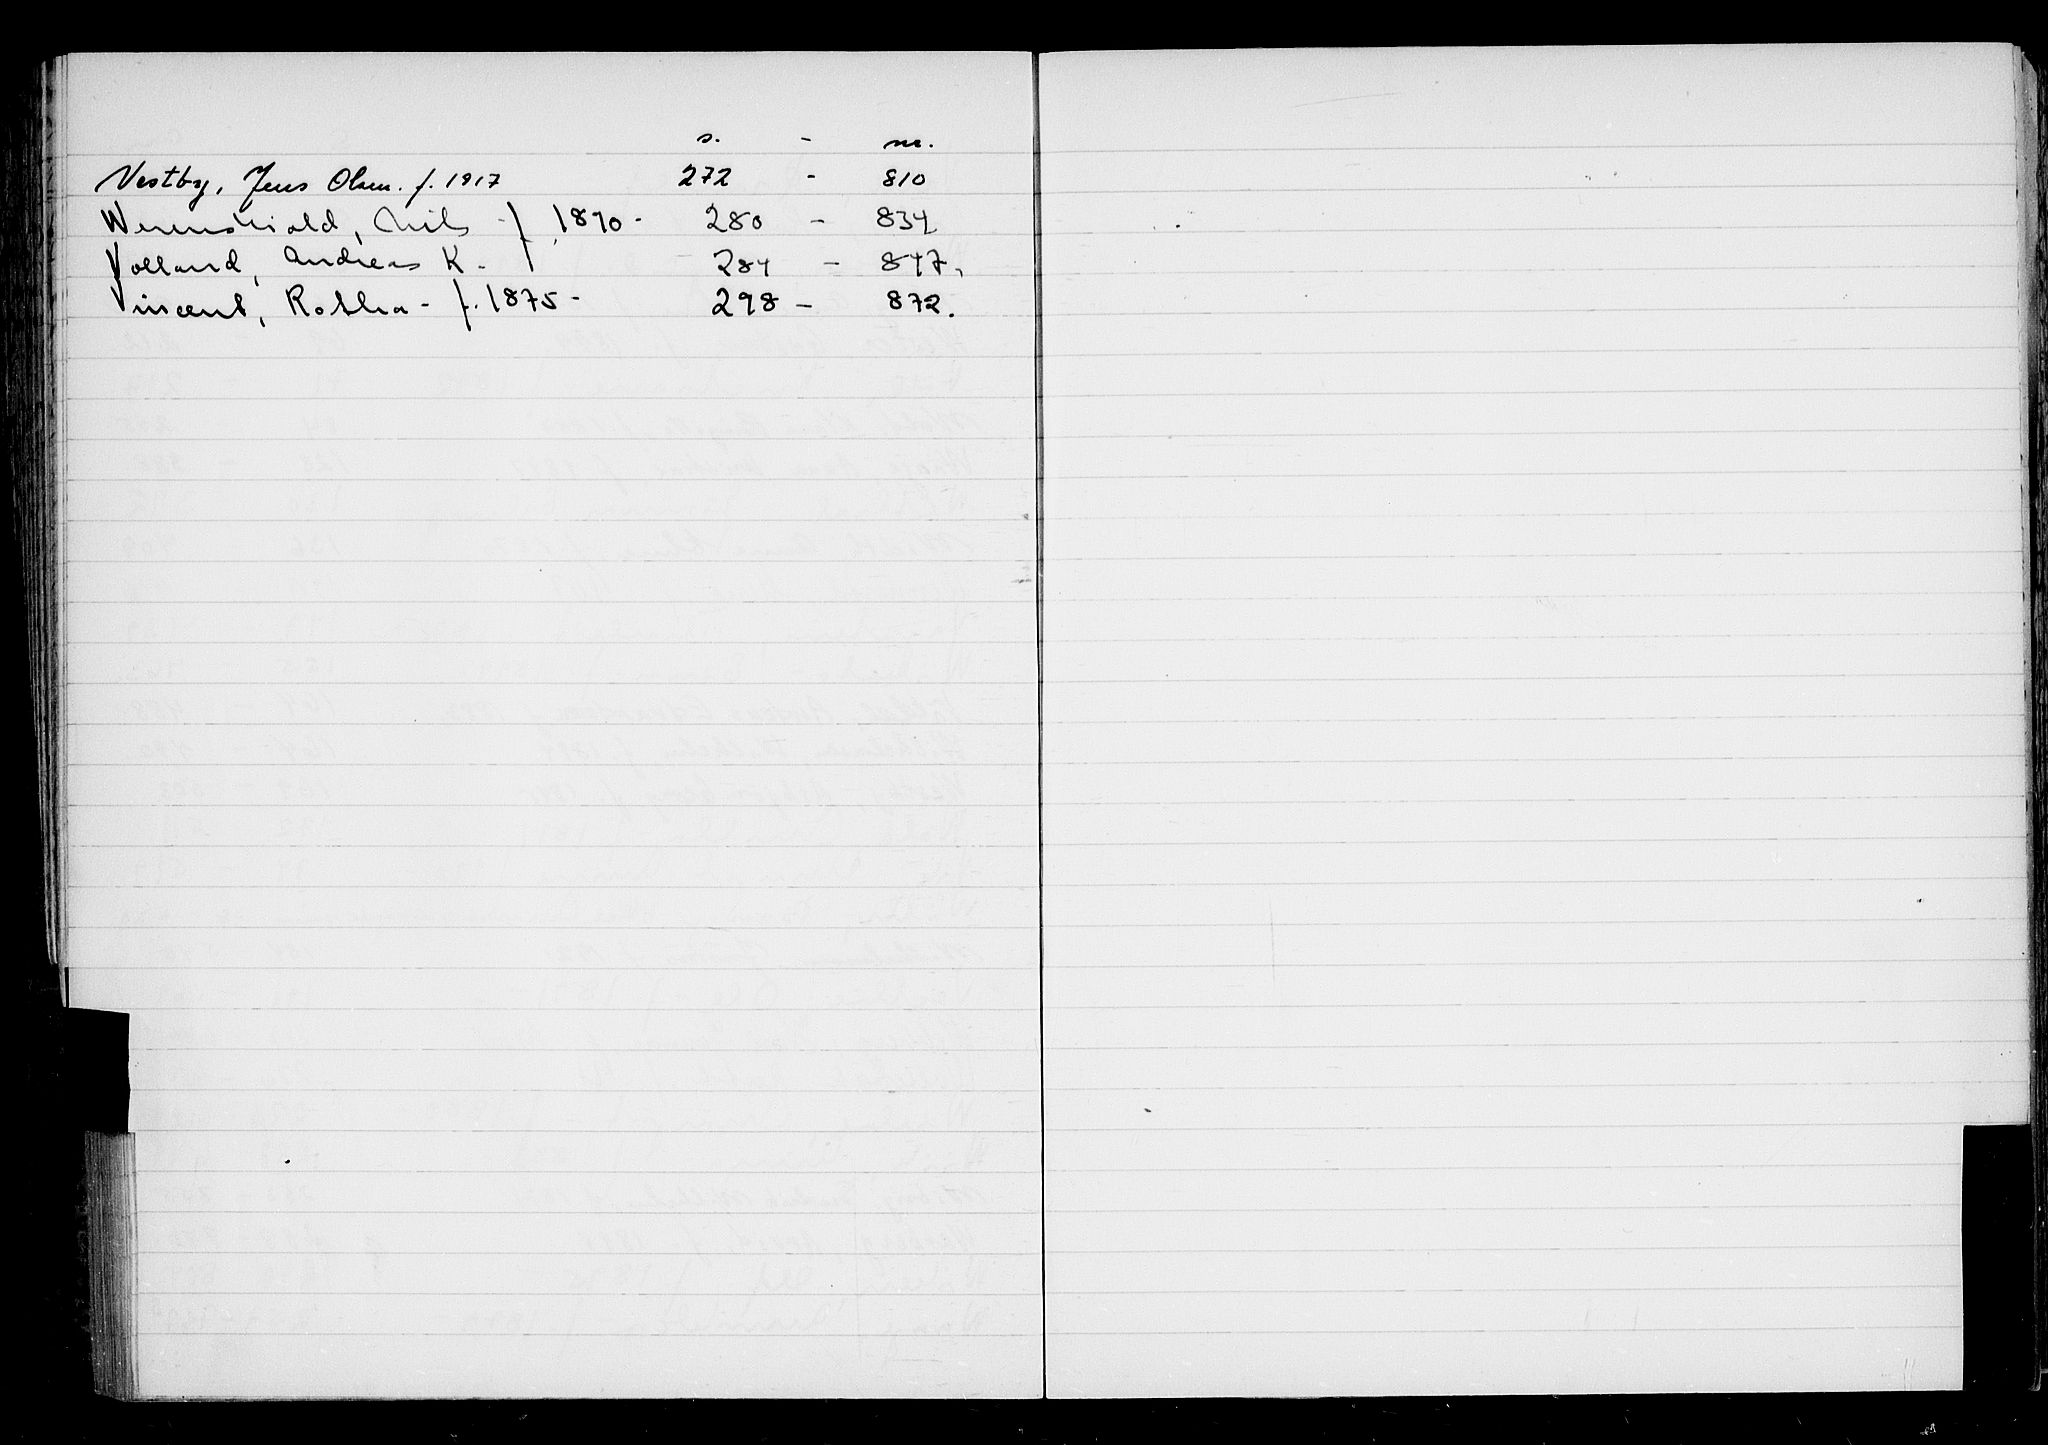 s. - nr.
Vestby, Jens Olsen. f. 1917 272 - 810
Werenskiold, Nils - f. 1890 - 280 - 834
Volland, Andreas K. f 284 - 847.
Vincent, - f. 1875 - 298 - 872.